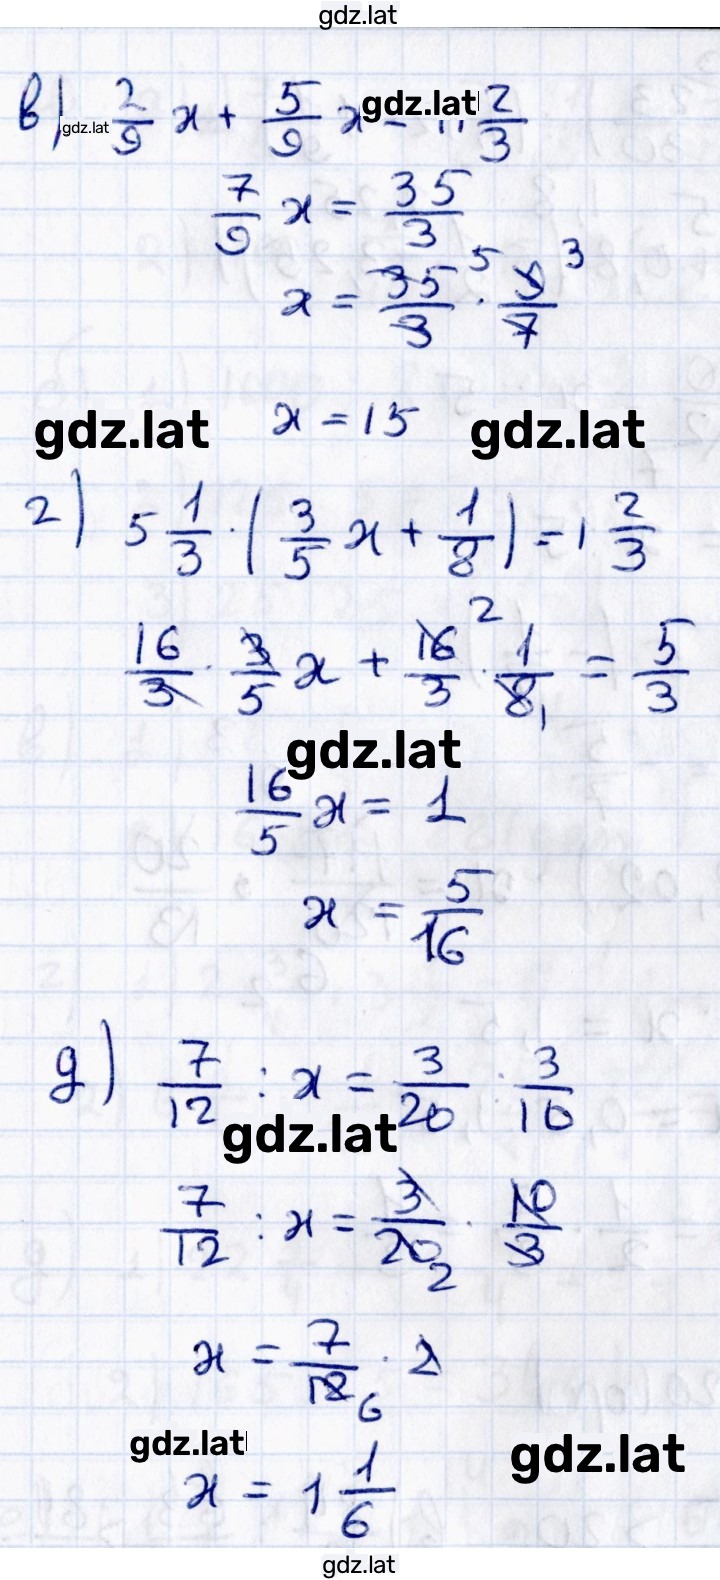 gdz.lat
в) 2/9 x + 5/9 x = 11 2/3
gdz.lat gdz.lat
7/9 x = 35/3
x = 35/3 5 · 9/7 3
x = 15
gdz.lat gdz.lat
г) 5 1/3 · (3/5 x + 1/8) = 1 2/3
16/3 · 3/5 x + 16/3 2 · 1/8 1 = 5/3
gdz.lat
16/5 x = 1
x = 5/16
д) 7/12 : x = 3/20 : 3/10
gdz.lat
7/12 : x = 3/20 2 · 10/3
x = 7/12 6 · 2
gdz.lat gdz.lat
x = 1 1/6
gdz.lat